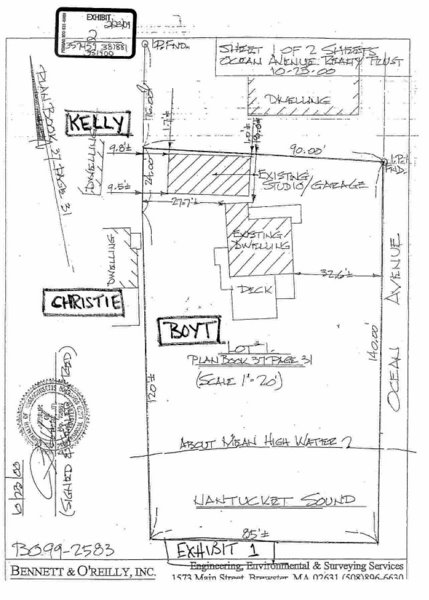 EXHIBIT
2
I.P. FND.
SHEET 1 OF 2 SHEETS
OCEAN AVENUE REALTY TRUST
10-23-00
DWELLING
KELLY
PLAN BOOK 37 PAGE 31
9.8'±
DWELLING
9.5'±
90.00'
I.P.
FND.
EXISTING
STUDIO/GARAGE
27.7'±
EXISTING
DWELLING
DWELLING
32.6'±
DECK
CHRISTIE
BOYT
LOT 1
PLAN BOOK 37 PAGE 31
(SCALE 1"=20')
120'±
140.00'
OCEAN AVENUE
(SIGNED & STAMPED RED)
10/23/00
ABOUT MEAN HIGH WATER
NANTUCKET SOUND
85'±
BO99-2583
EXHIBIT 1
BENNETT & O'REILLY, INC.
Engineering, Environmental & Surveying Services
1573 Main Street, Brewster, MA 02631 (508)896-6630